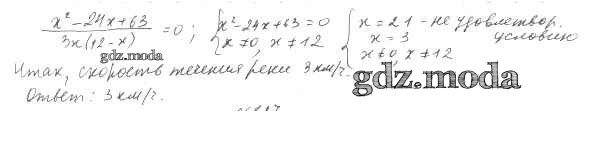 x² - 24x + 63 / 3x(12 - x) = 0; { x² - 24x + 63 = 0 x ≠ 0, x ≠ 12 { x = 21 - не удовлетвор. условию x = 3 x ≠ 0, x ≠ 12
gdz.moda
Итак, скорость течения реки 3 км/ч.
gdz.moda
Ответ: 3 км/ч.